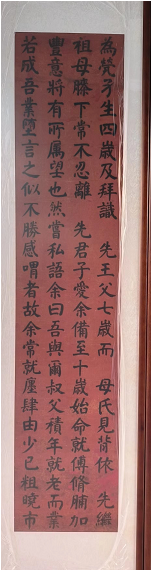 為煢孑生四歲及拜識　先王父七歲而　母氏見背依　先繼
祖母膝下常不忍離　先君子愛余備至十歲始命就傅脩脯加
豐意將有所屬望也然嘗私語余曰吾與爾叔父積年就老而業
若成吾業墮言之似不勝感喟者故余常就廛肆由少已粗曉市